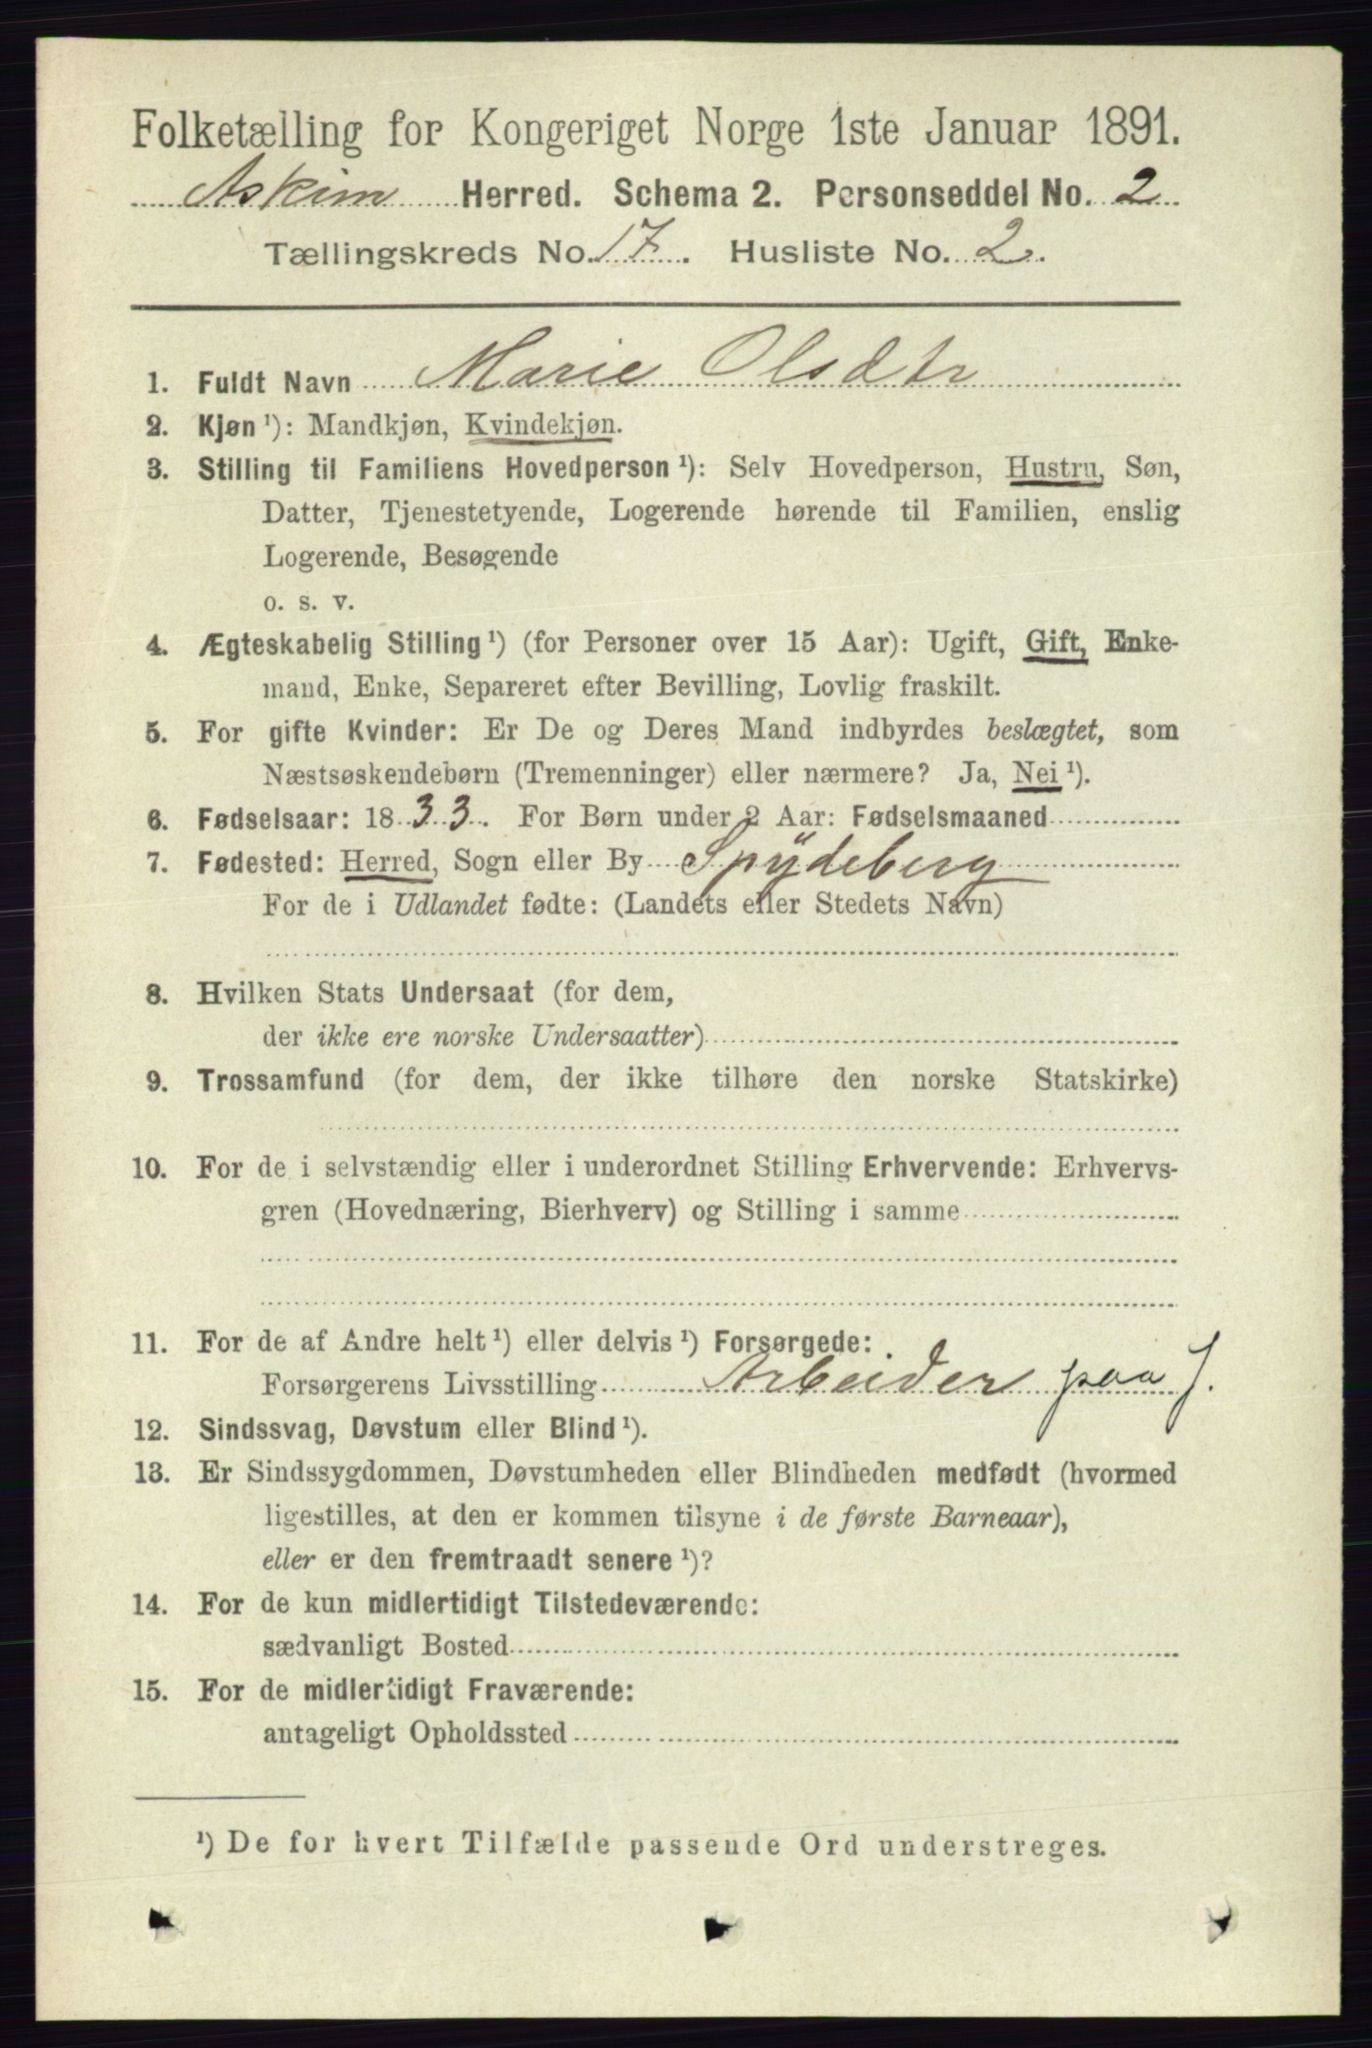 Folketælling for Kongeriget Norge 1ste Januar 1891.
Askim Herred. Schema 2. Personseddel No. 2
Tællingskreds No. 17. Husliste No. 2.
1. Fuldt Navn Marie Olsdtr
2. Kjøn¹): Mandkjøn, Kvindekjøn.
3. Stilling til Familiens Hovedperson¹): Selv Hovedperson, Hustru, Søn,
Datter, Tjenestetyende, Logerende hørende til Familien, enslig
Logerende, Besøgende
o. s. v.
4. Ægteskabelig Stilling¹) (for Personer over 15 Aar): Ugift, Gift, Enke-
mand, Enke, Separeret efter Bevilling, Lovlig fraskilt.
5. For gifte Kvinder: Er De og Deres Mand indbyrdes beslægtet, som
Næstsøskendebørn (Tremenninger) eller nærmere? Ja, Nei¹).
6. Fødselsaar: 1833. For Børn under 2 Aar: Fødselsmaaned
7. Fødested: Herred, Sogn eller By Spydeberg
For de i Udlandet fødte: (Landets eller Stedets Navn)
8. Hvilken Stats Undersaat (for dem,
der ikke ere norske Undersaatter)
9. Trossamfund (for dem, der ikke tilhøre den norske Statskirke)
10. For de i selvstændig eller i underordnet Stilling Erhvervende: Erhvervs-
gren (Hovednæring, Bierhverv) og Stilling i samme
11. For de af Andre helt¹) eller delvis¹) Forsørgede:
Forsørgerens Livsstilling Arbeider paa J.
12. Sindssvag, Døvstum eller Blind¹).
13. Er Sindssygdommen, Døvstumheden eller Blindheden medfødt (hvormed
ligestilles, at den er kommen tilsyne i de første Barneaar),
eller er den fremtraadt senere¹)?
14. For de kun midlertidigt Tilstedeværende:
sædvanligt Bosted
15. For de midlertidigt Fraværende:
antageligt Opholdssted
¹) De for hvert Tilfælde passende Ord understreges.